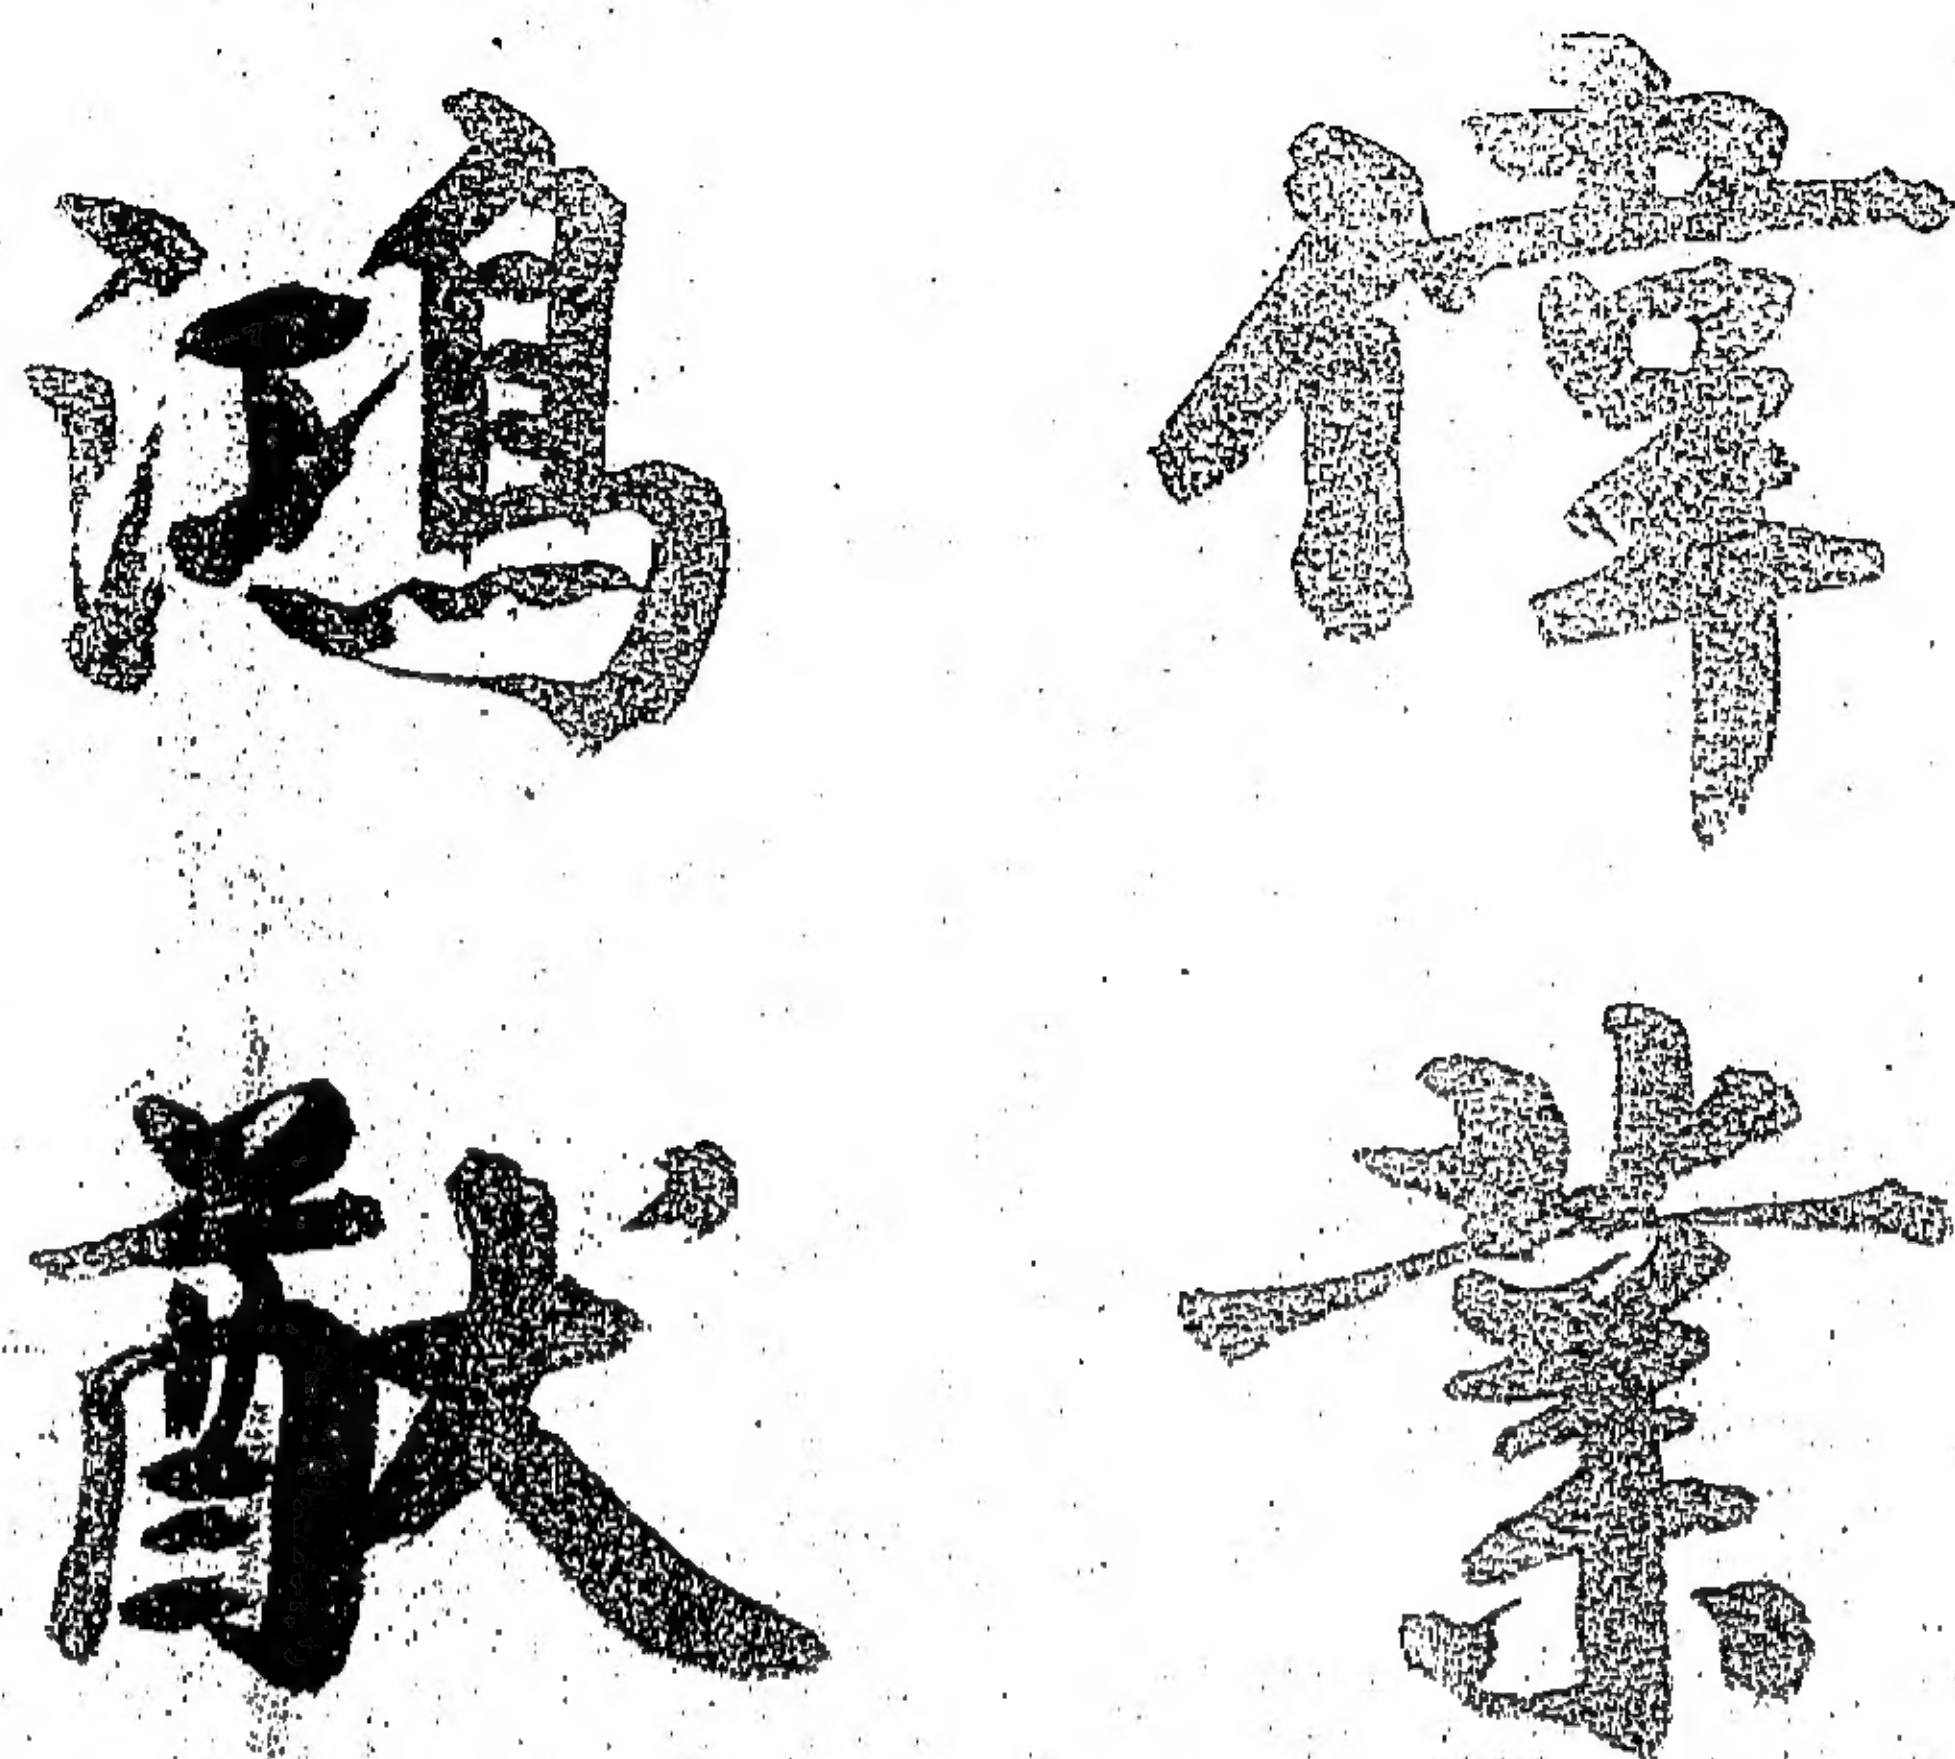 偉業
鴻猷